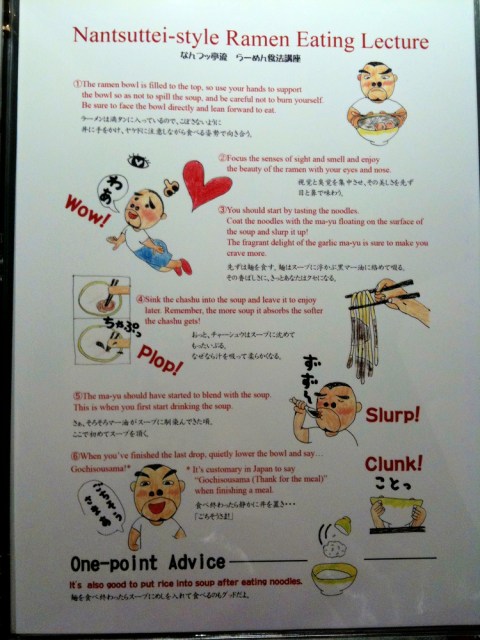 Nantsuttei-style Ramen Eating Lecture
なんつッ亭流 らーめん喰法講座
①The ramen bowl is filled to the top, so use your hands to support
the bowl so as not to spill the soup, and be careful not to burn yourself.
Be sure to face the bowl directly and lean forward to eat.
ラーメンは満タンに入っているので、こぼさないように
丼に手をかけ、ヤケドに注意しながら食べる姿勢で向き合う。
②Focus the senses of sight and smell and enjoy
the beauty of the ramen with your eyes and nose.
視覚と臭覚を集中させ、その美しさを先ず
目と鼻で味わう。
わぁ
Wow!
③You should start by tasting the noodles.
Coat the noodles with the ma-yu floating on the surface of
the soup and slurp it up!
The fragrant delight of the garlic ma-yu is sure to make you
crave more.
先ずは麺を食す。麺はスープに浮かぶ黒マー油に絡めて啜る。
その香ばしさに、きっとあなたはクセになる。
④Sink the chashu into the soup and leave it to enjoy
later. Remember, the more soup it absorbs the softer
the chashu gets!
おっと、チャーシュウはスープに沈めて
もったいぶる。
なぜなら汁を吸って柔らかくなる。
ちゃぷっ
Plop!
⑤The ma-yu should have started to blend with the soup.
This is when you first start drinking the soup.
さぁ、そろそろマー油がスープに馴染んできた頃。
ここで初めてスープを頂く
ずずーっ
Slurp!
⑥When you've finished the last drop, quietly lower the bowl and say…
Gochisousama!*
* It's customary in Japan to say
"Gochisousama (Thank for the meal)"
when finishing a meal.
食べ終わったら静かに丼を置き・・・
「ごちそうさま!」
Clunk!
ことっ
One-point Advice
It's also good to put rice into soup after eating noodles.
麺を食べ終わったらスープにめしを入れて食べるのもグッドだよ。